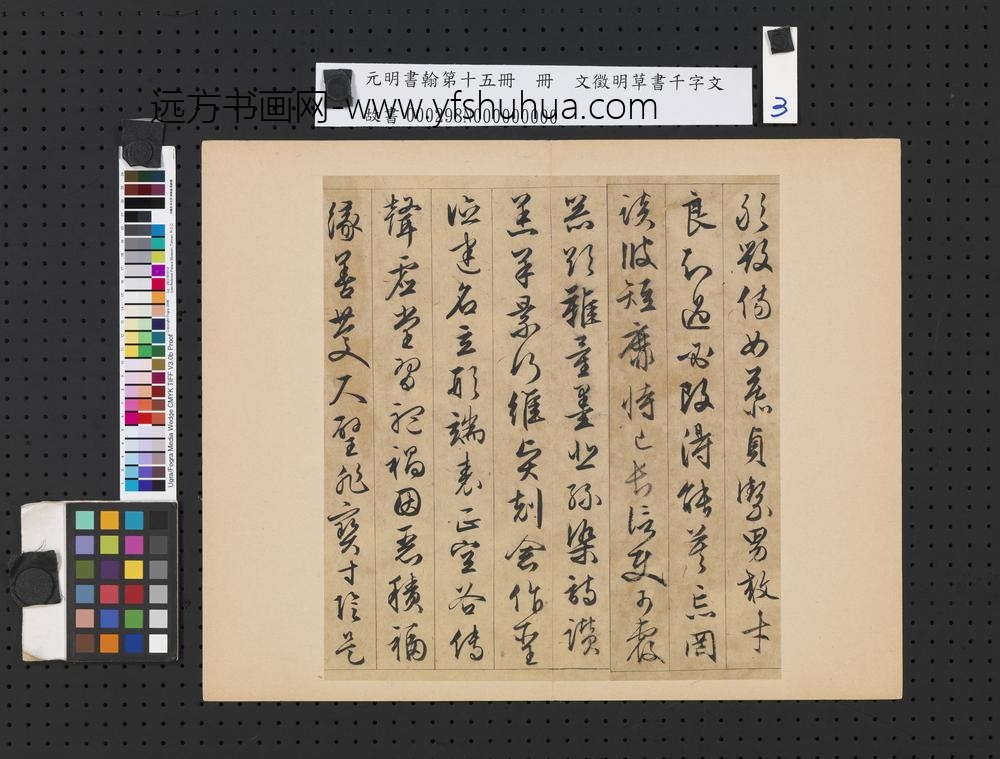 元明書翰第十五冊 冊 文徵明草書千字文
故書 000298N000000000
远方书画网-www.yfshuhua.com
3
敢毀傷女慕貞潔男效才
良知過必改得能莫忘罔
談彼短靡恃己長信使可覆
器欲難量墨悲絲染詩讚
羔羊景行維賢剋念作聖
德建名立形端表正空谷傳
聲虛堂習聽禍因惡積福
緣善慶尺璧非寶寸陰是